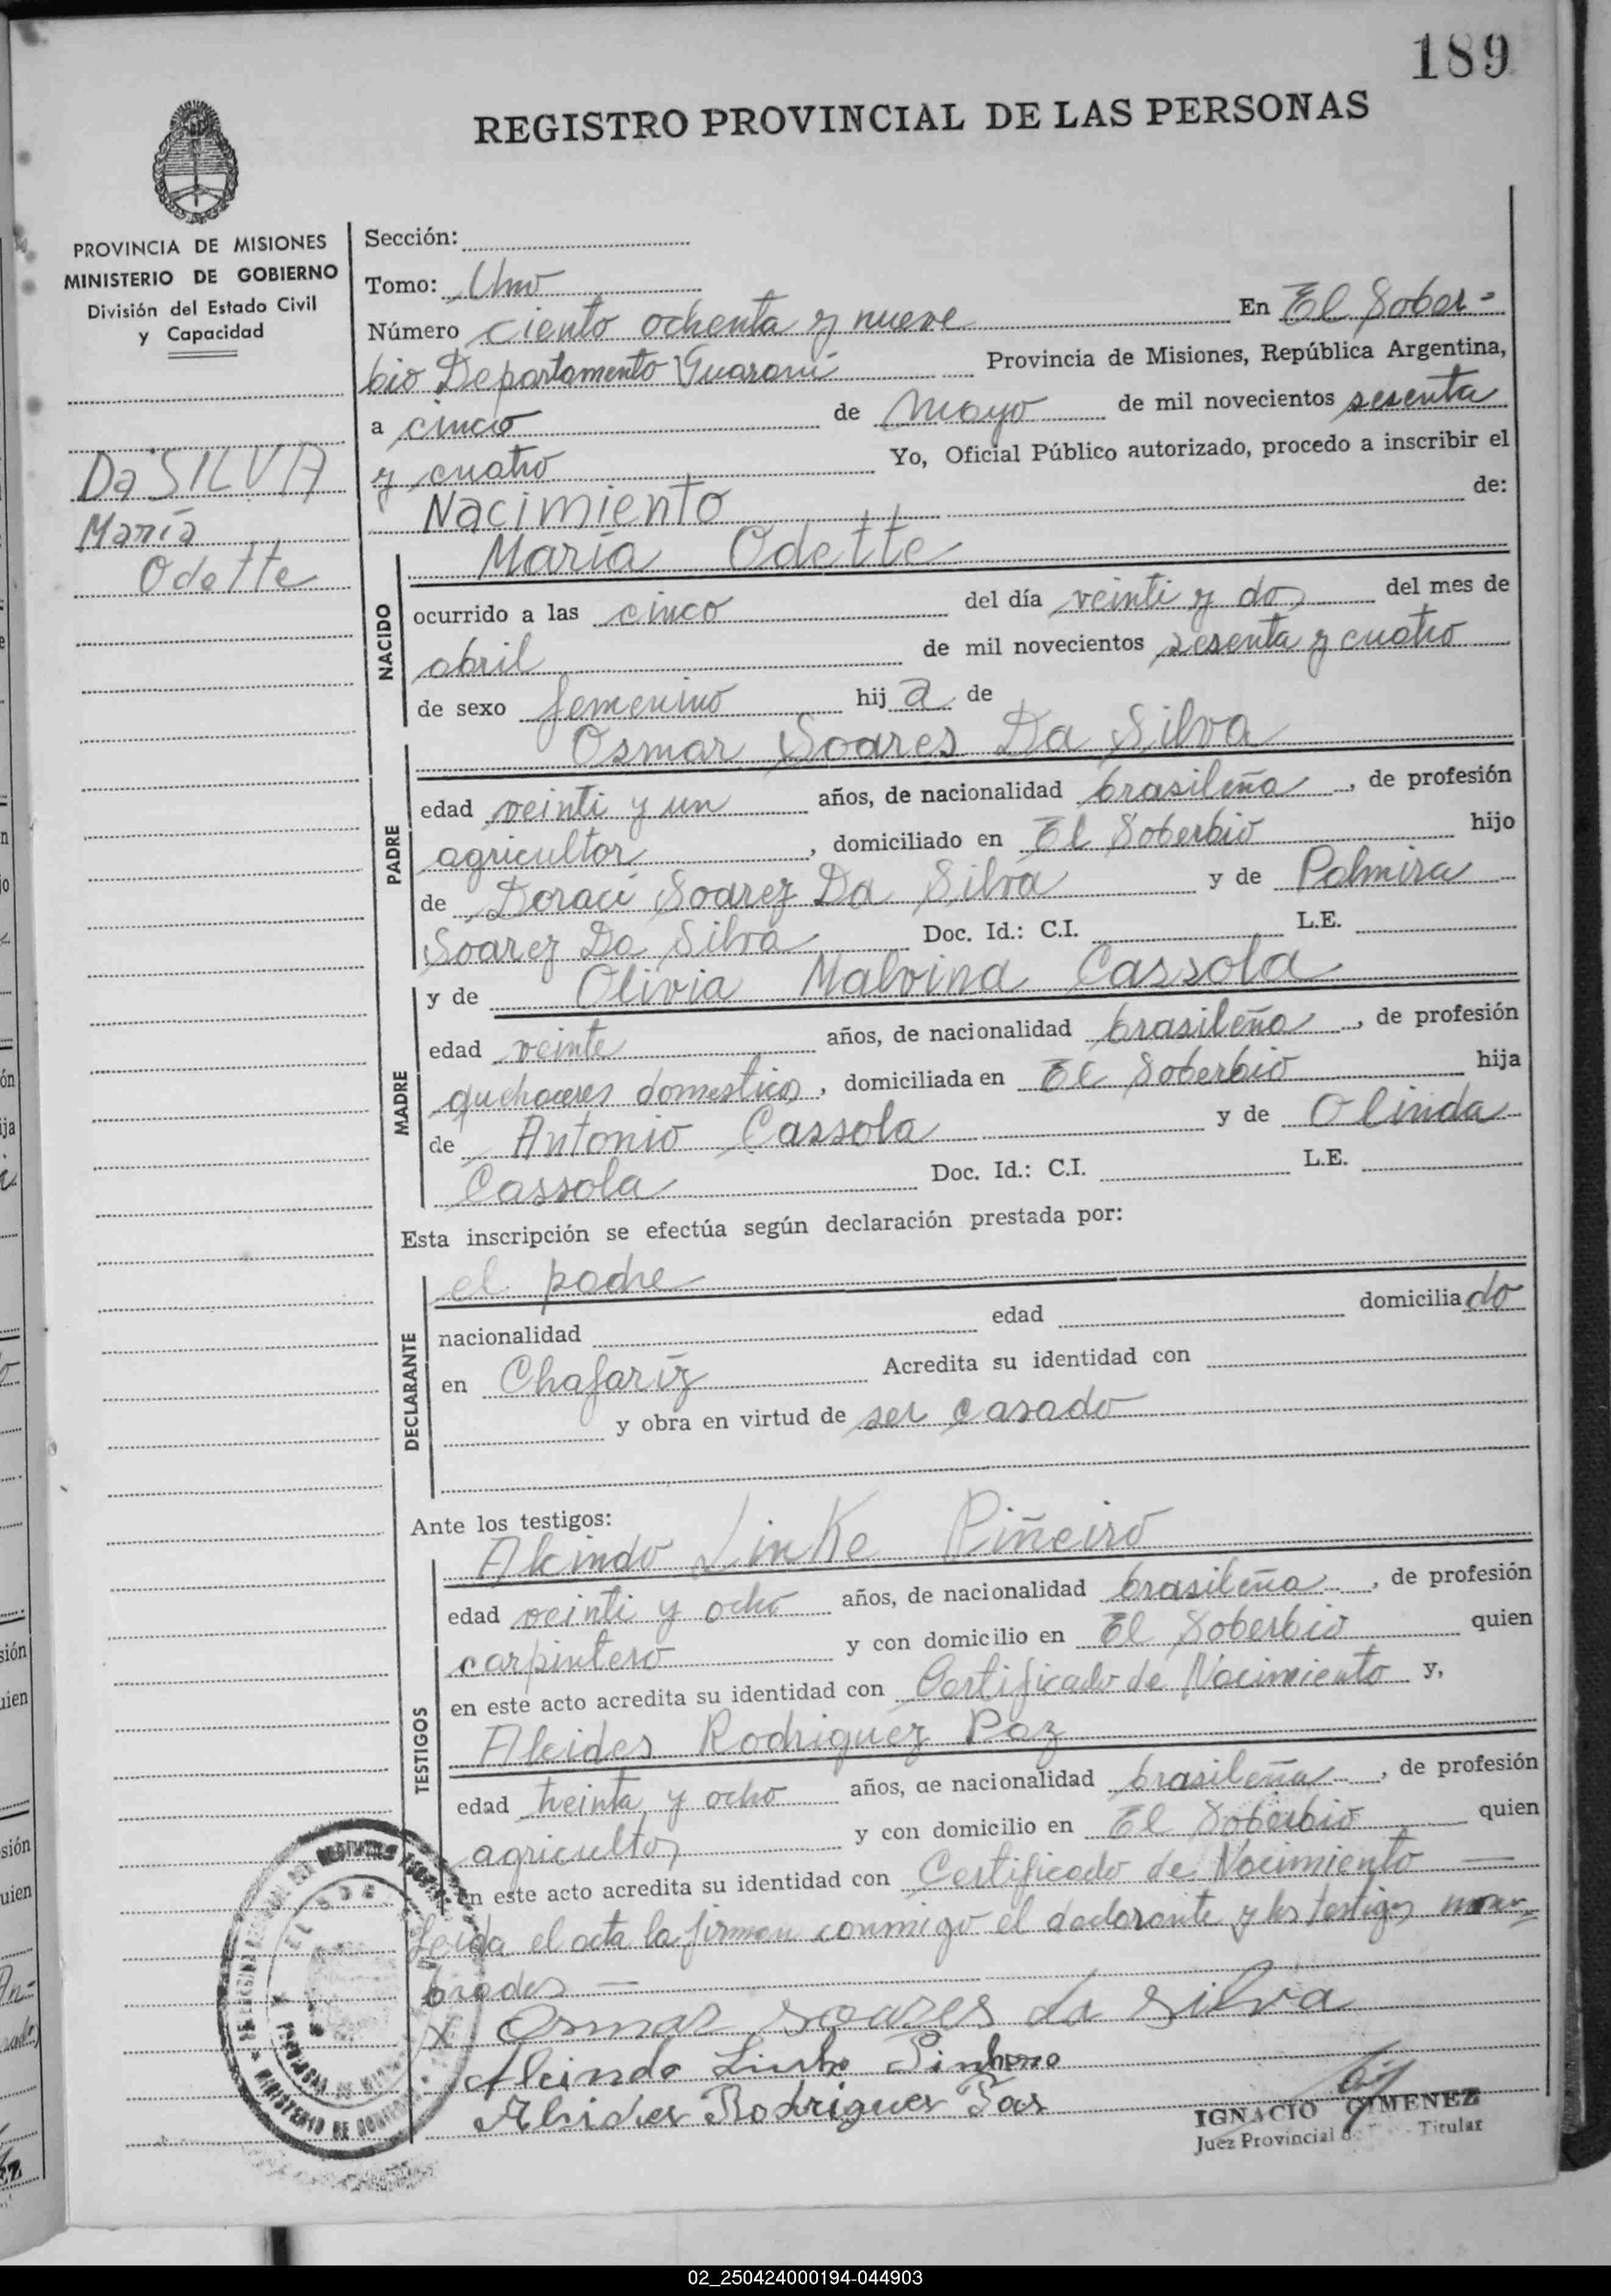 189
REGISTRO PROVINCIAL DE LAS PERSONAS
PROVINCIA DE MISIONES
MINISTERIO DE GOBIERNO
División del Estado Civil
y Capacidad
Da SILVA
María
Odette
Sección:
Tomo: Uno
Número ciento ochenta y nueve En El Sober-
bio Departamento Guaraní Provincia de Misiones, República Argentina,
a cinco de Mayo de mil novecientos sesenta
y cuatro Yo, Oficial Público autorizado, procedo a inscribir el
Nacimiento de:
NACIDO
María Odette
ocurrido a las cinco del día veinti y dos del mes de
abril de mil novecientos sesenta y cuatro
de sexo femenino hij a de
PADRE
Osmar Soares Da Silva
edad veinti y un años, de nacionalidad brasileña, de profesión
agricultor, domiciliado en El Soberbio hijo
de Doraci Soarez Da Silva y de Palmira
Soarez Da Silva Doc. Id.: C.I. L.E.
MADRE
y de Olivia Malvina Cassola
edad veinte años, de nacionalidad brasileña, de profesión
quehaceres domestico, domiciliada en El Soberbio hija
de Antonio Cassola y de Olinda
Cassola Doc. Id.: C.I. L.E.
Esta inscripción se efectúa según declaración prestada por:
DECLARANTE
el padre
nacionalidad edad domicilia do
en Chafaríz Acredita su identidad con
y obra en virtud de ser casado
Ante los testigos:
TESTIGOS
Alcindo Linke Piñeiro
edad veinti y ocho años, de nacionalidad brasileña, de profesión
carpintero y con domicilio en El Soberbio quien
en este acto acredita su identidad con Certificado de Nacimiento y,
Alcides Rodriguez Paz
edad treinta y ocho años, de nacionalidad brasileña, de profesión
agricultor y con domicilio en El Soberbio quien
en este acto acredita su identidad con Certificado de Nacimiento —
Leida el acta la firman conmigo el declarante y los testigos nom-
brados —
X Osmar soares da silva
Alcindo Linke Pinheiro
Alcides Rodrigues Pas
IGNACIO GIMENEZ
Juez Provincial de Titular
02_250424000194-044903